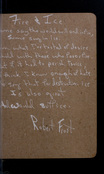 Fire & Ice
Some say the world will end in fire,
Some say in ice.
what I've tasted of desire
hold with those who favor fire.
if it had to perish twice,
I think I know enough of hate
say that for destruction ice
Is also great
would suffice.
Robert Frost